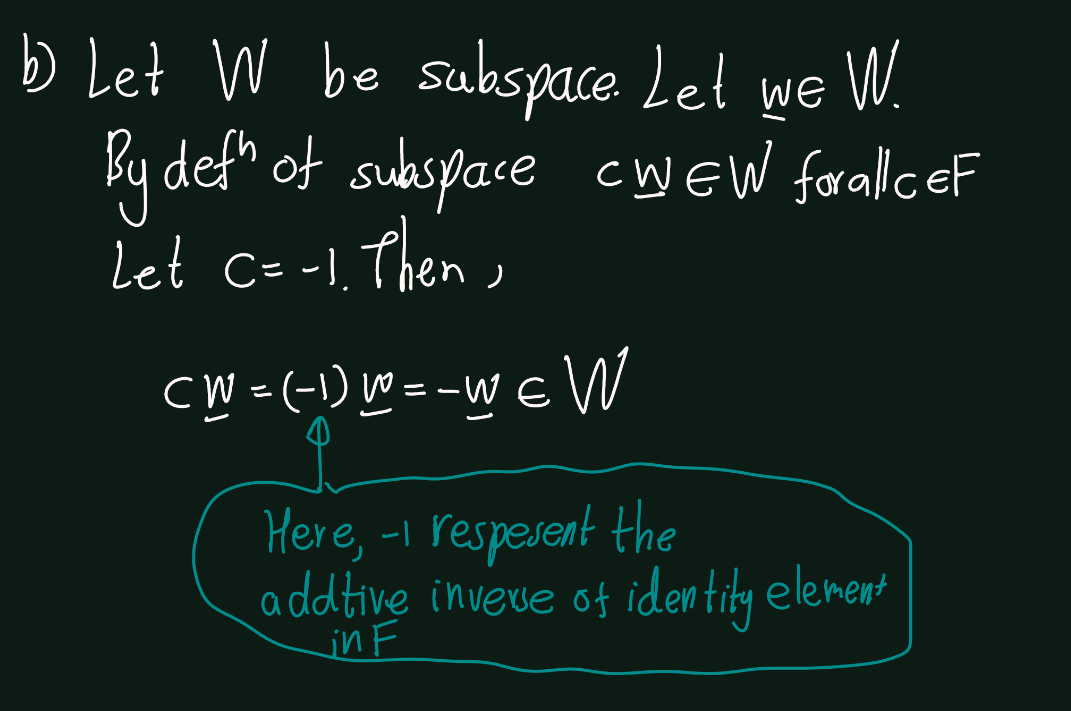 b) Let W be subspace. Let w ∈ W.
By defⁿ of subspace cw ∈ W for all c ∈ F
Let c = -1. Then,
cw = (-1) w = -w ∈ W
Here, -1 respesent the
addtive inverse of identity element
in F